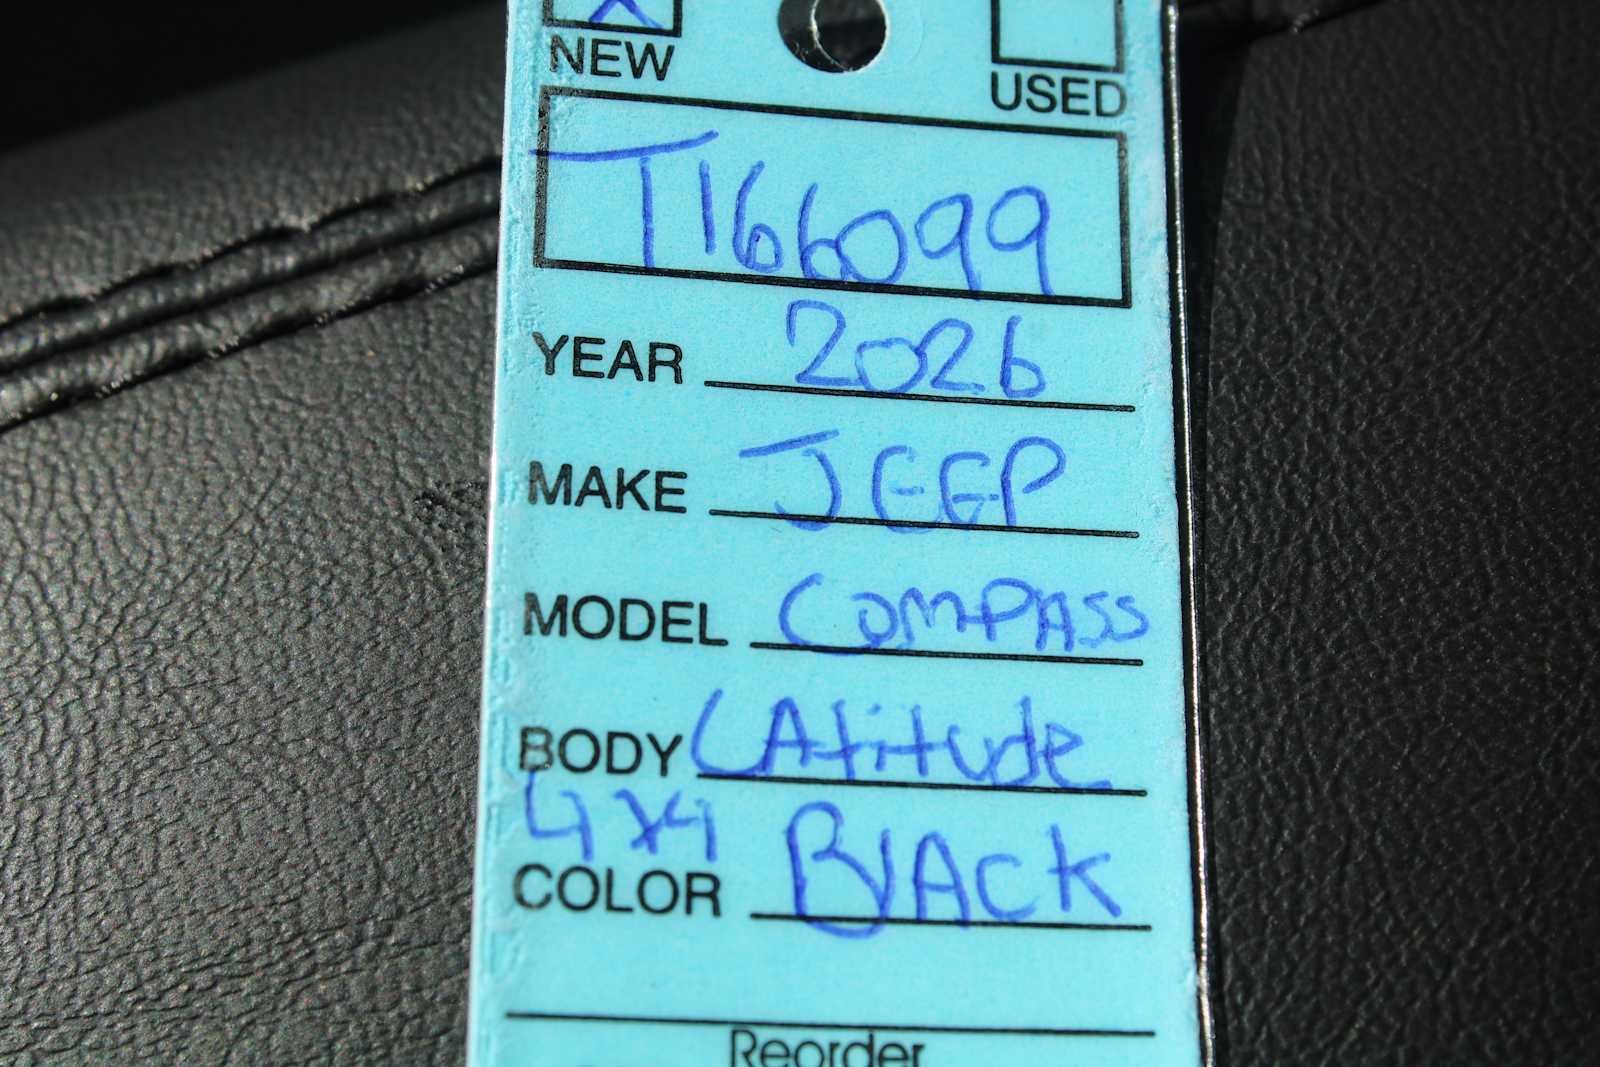 X
NEW USED
T166099
YEAR 2026
MAKE JEEP
MODEL COMPASS
BODY LAtitude
4x4
COLOR BlAck
Reorder